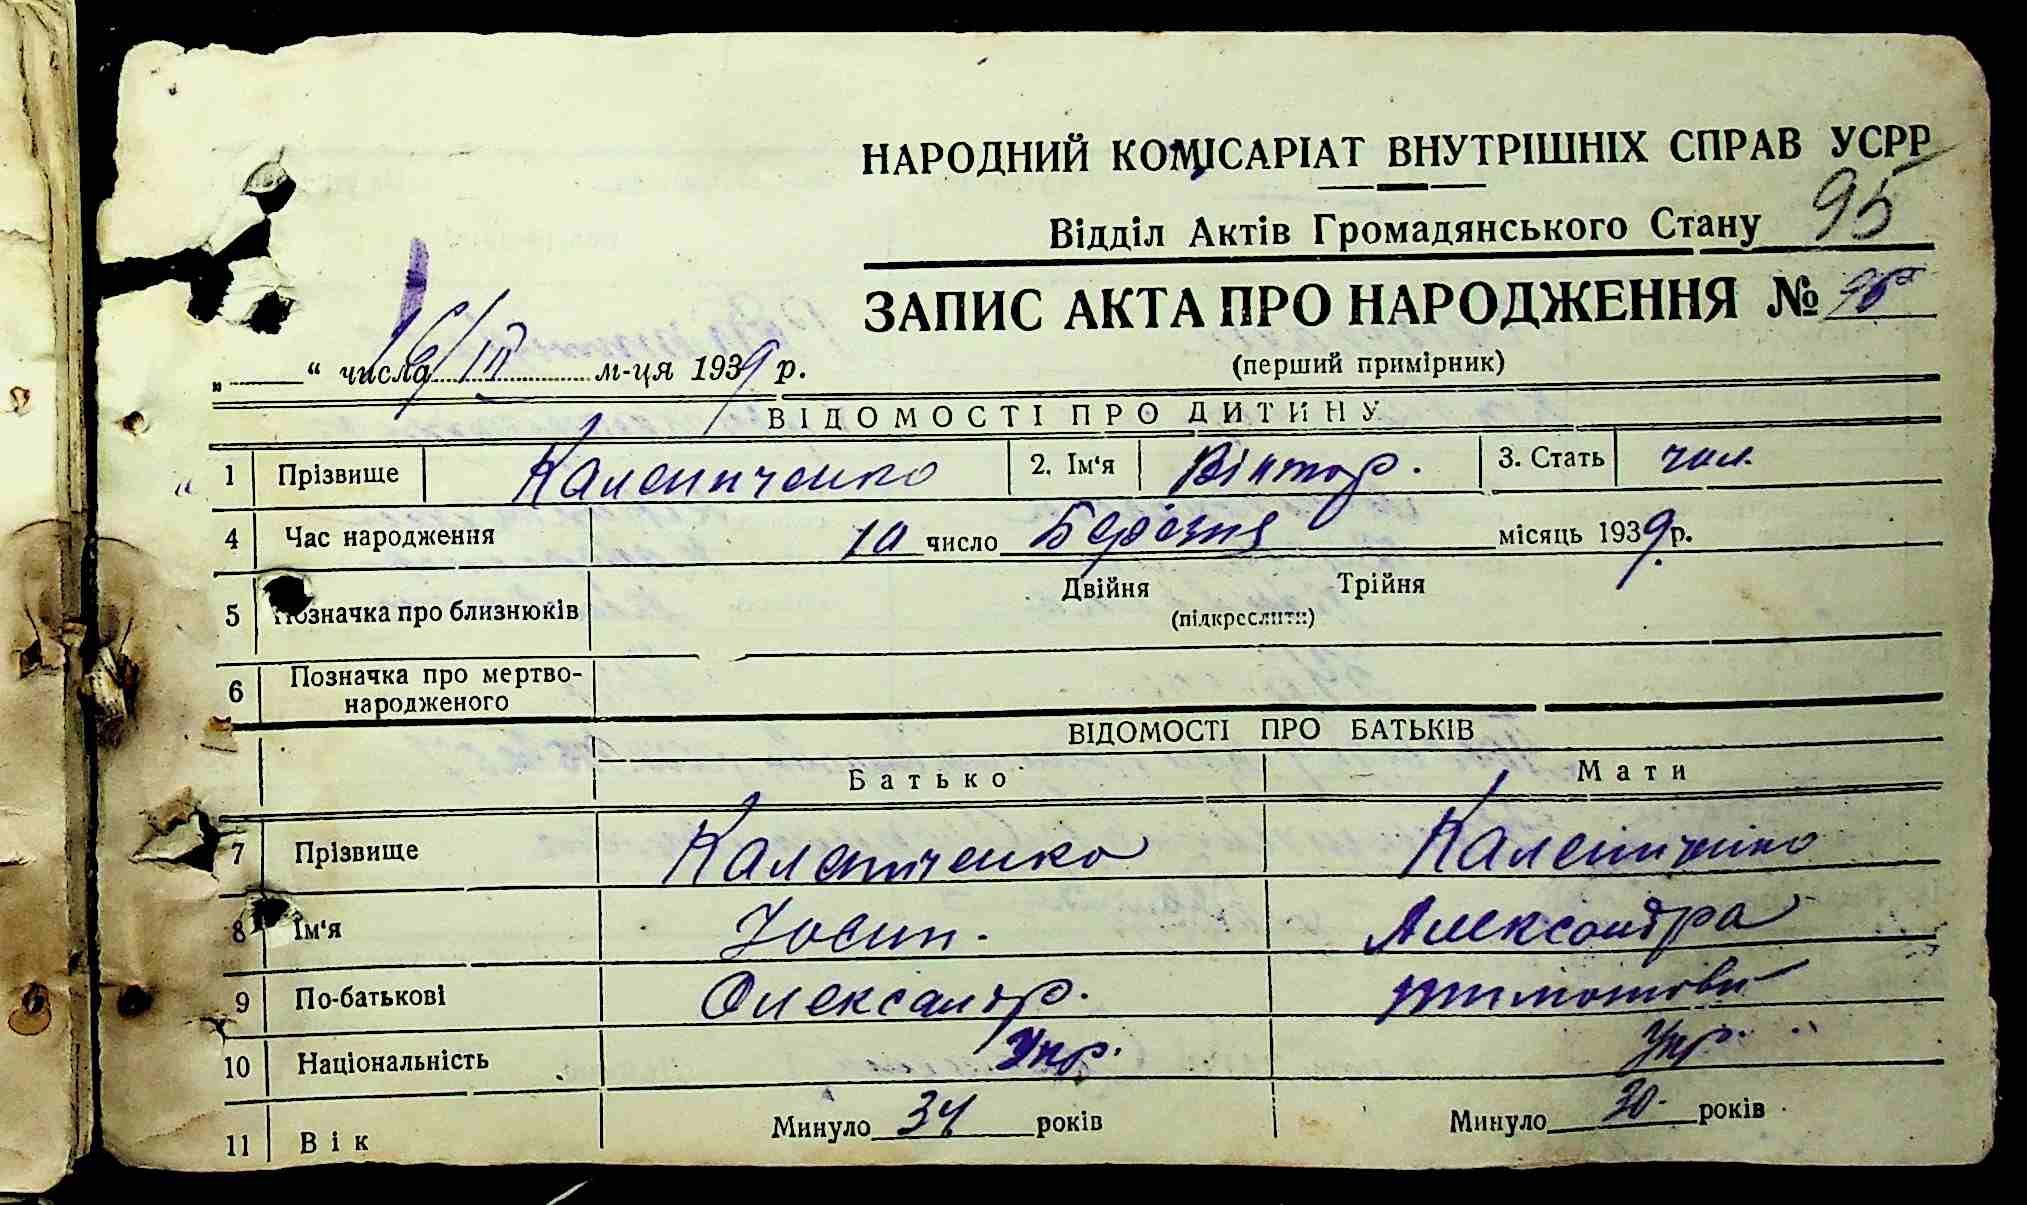 НАРОДНИЙ КОМІСАРІАТ ВНУТРІШНІХ СПРАВ УСРР
Відділ Актів Громадянського Стану 95
ЗАПИС АКТА ПРО НАРОДЖЕННЯ № 95
„ “ числа 16/III м-ця 1939 р.
(перший примірник)
ВІДОМОСТІ ПРО ДИТИНУ
1 Прізвище Калениченко 2. Ім‘я Віктор. 3. Стать чол.
4 Час народження 10 число Березня місяць 1939 р.
5 Позначка про близнюків Двійня Трійня
(підкреслити)
6 Позначка про мертво-
народженого
ВІДОМОСТІ ПРО БАТЬКІВ
Батько Мати
7 Прізвище Калениченко Калениченко
8 Ім‘я Йосип. Александра
9 По-батькові Олександр. Тимотові
10 Національність Укр. Укр.
11 Вік Минуло 34 років Минуло 30 років